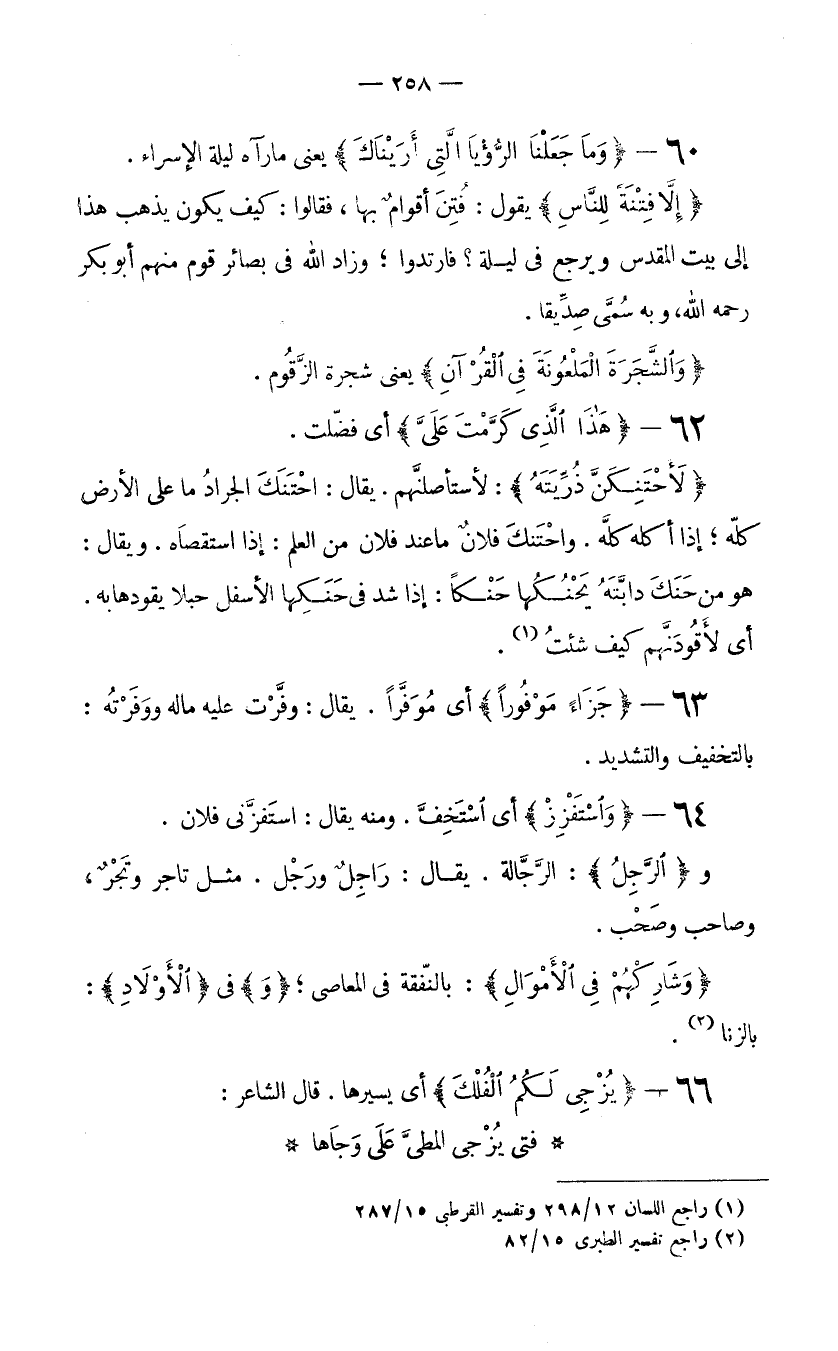 — ٢٥٨ —
٦٠ — ﴿ وَمَا جَعَلْنَا الرُّؤْيَا الَّتِى أَرَيْنَاكَ ﴾ يعنى مارآه ليلة الإسراء .
﴿ إِلَّا فِتْنَةً لِلنَّاسِ ﴾ يقول : فُتِنَ أقوامٌ بها ، فقالوا : كيف يكون يذهب هذا
إلى بيت المقدس ويرجع فى ليلة ؟ فارتدوا ؛ وزاد الله فى بصائر قوم منهم أبو بكر
رحمه الله، وبه سُمِّىَ صدِّيقا .
﴿ وَٱلشَّجَرَةَ الْمَلْعُونَةَ فِى ٱلْقُرْآنِ ﴾ يعنى شجرة الزَّقُوم .
٦٢ — ﴿ هَٰذَا ٱلَّذِى كَرَّمْتَ عَلَىَّ ﴾ أى فضّلت .
﴿ لَأَحْتَنِكَنَّ ذُرِّيَّتَهُ ﴾ : لأستأصلنَّهم . يقال : احْتَنَكَ الجرادُ ما على الأرض
كلّه ؛ إذا أكله كلَّه . واحْتَنكَ فلانٌ ماعند فلان من العلم : إذا استقصاَه . ويقال :
هو من حَنَكَ دابَّتَهُ يَحْنُكُها حَنْكاً : إذا شد فى حَنَكِها الأسفل حبلا يقودهابه .
أى لأَقُودَنَّهم كيف شئتُ (١) .
٦٣ — ﴿ جَزَاءً مَوْفُوراً ﴾ أى مُوَفَّراً . يقال : وفَّرْت عليه ماله ووَفَرْتهُ :
بالتخفيف والتشديد .
٦٤ — ﴿ وَٱسْتَفْزِزْ ﴾ أى ٱسْتَخِفَّ . ومنه يقال : استَفزَّنى فلان .
و ﴿ ٱلرَّجِلُ ﴾ : الرَّجَّالة . يقال : رَاجِلٌ ورَجْل . مثل تاجر وتَجْرٌ ،
وصاحب وصَحْب .
﴿ وَشَارِكْهُمْ فِى ٱلْأَمْوَالِ ﴾ : بالنّفقة فى المعاصى ؛ ﴿ وَ ﴾ فى ﴿ ٱلْأَوْلَادِ ﴾ :
بالزنا (٢) .
٦٦ — ﴿ يُزْجِى لَكُمُ ٱلْفُلْكَ ﴾ أى يسيرها . قال الشاعر :
* فتى يُزْجى المطىَّ عَلَى وَجاَها *
(١) راجع اللسان ٢٩٨/١٢ وتفسير القرطبى ٢٨٧/١٥
(٢) راجع تفسير الطبرى ٨٢/١٥